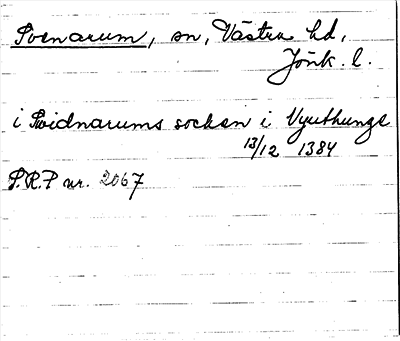 Svenarum, sn, Västra hd,
Jönk. l.
i Swidnarums socken i Vyuthungs
13/12 1384
S.R.P nr. 2067